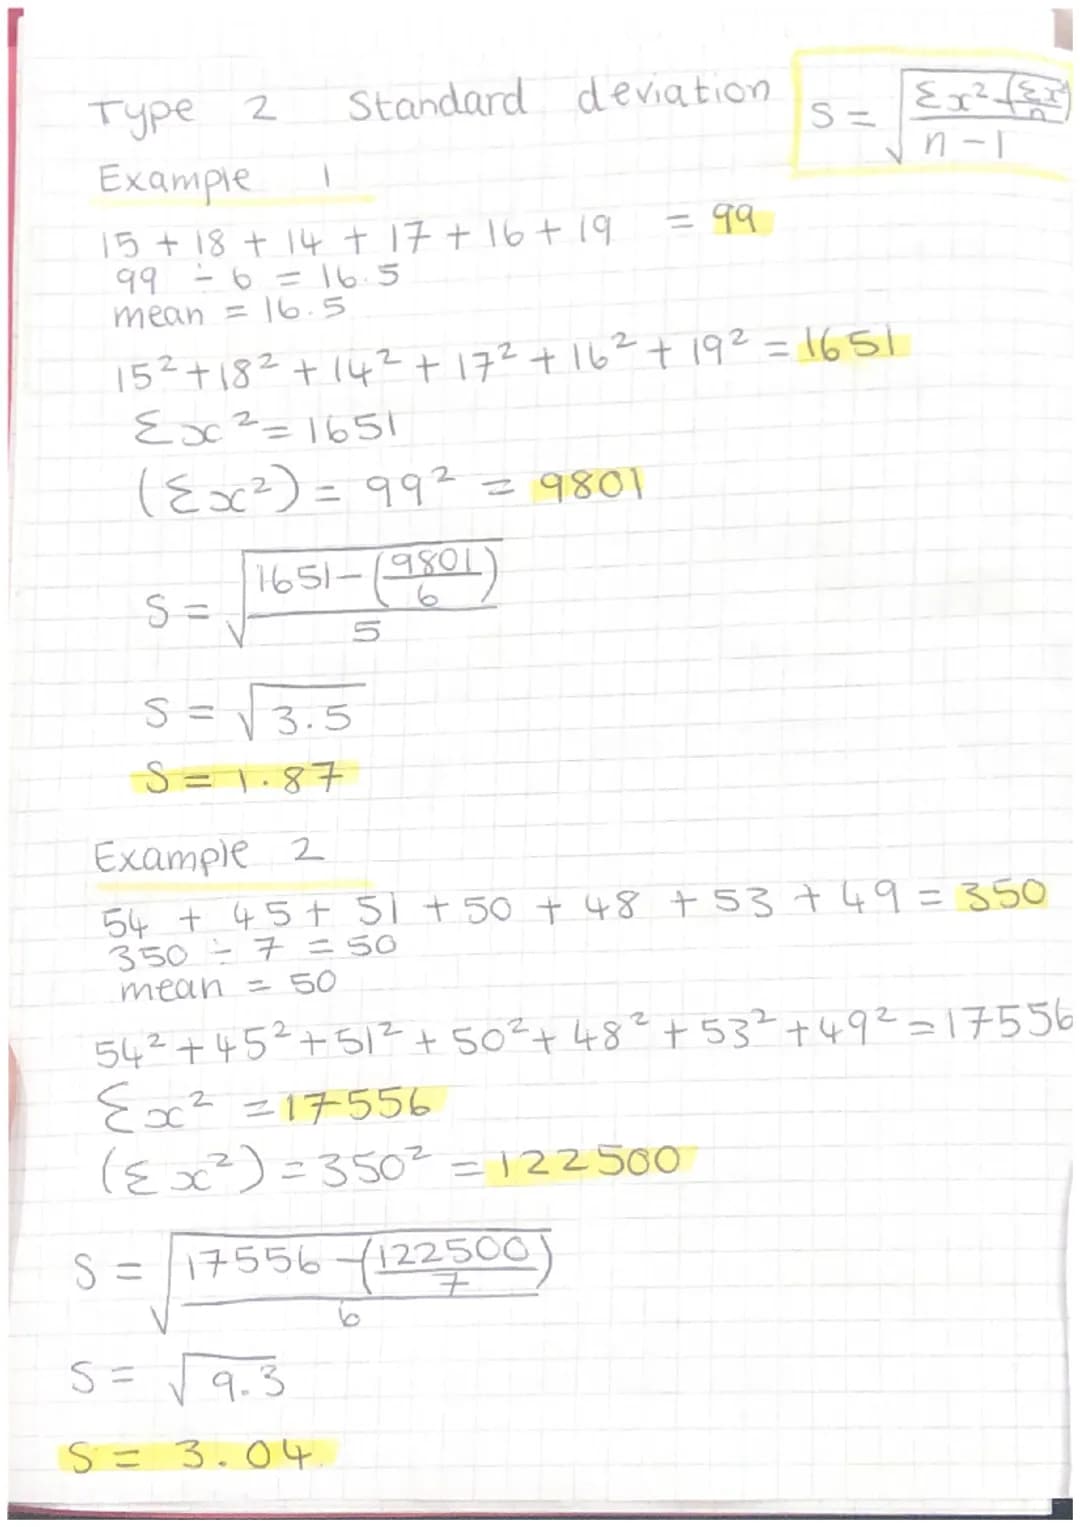 Type 2 Standard deviation S = √((Σx² - (Σx²/n)) / (n-1))
Example 1
15 + 18 + 14 + 17 + 16 + 19 = 99
99 ÷ 6 = 16.5
mean = 16.5
15² + 18² + 14² + 17² + 16² + 19² = 1651
Σx² = 1651
(Σx²) = 99² = 9801
S = √((1651 - (9801/6)) / 5)
S = √3.5
S = 1.87
Example 2
54 + 45 + 51 + 50 + 48 + 53 + 49 = 350
350 ÷ 7 = 50
mean = 50
54² + 45² + 51² + 50² + 48² + 53² + 49² = 17556
Σx² = 17556
(Σx²) = 350² = 122500
S = √((17556 - (122500/7)) / 6)
S = √9.3
S = 3.04